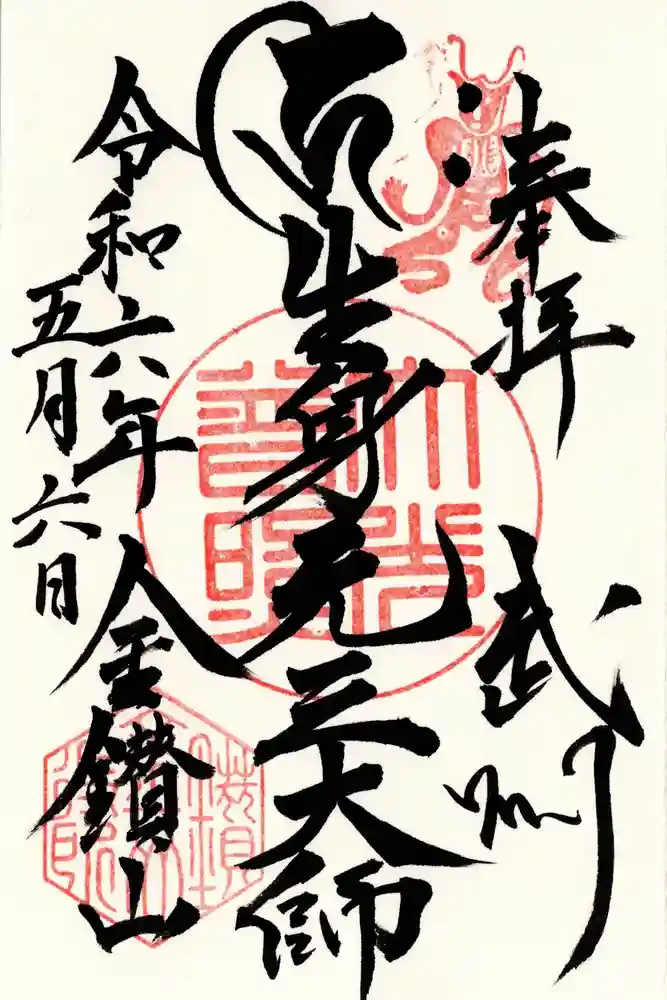 奉拝
武州
生身元三大師
金鑚山
令和六年
五月六日